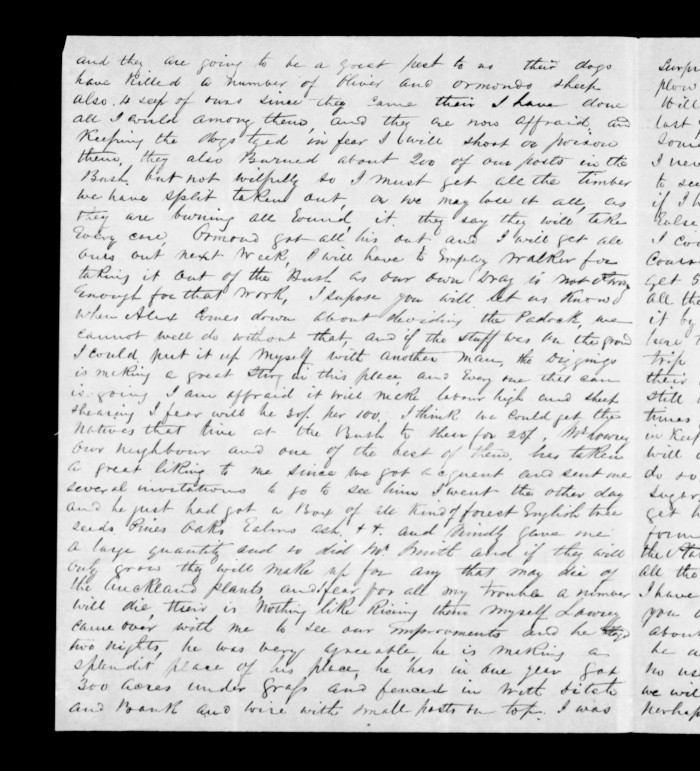 and they are going to be a great pest to us their dogs
have killed a number of Oliver and Ormonds sheep
also 4 of ours since they came their I have done
all I could among them, and they are now affraid and
Keeping the dogs tyed in fear I will shoot or poison
them, they also Burned about 200 of our posts in the
Bush but not wilfully so I must get all the timber
we have split taken out, or we may lose it all, as
they are burning all round it they say they will take
Every care, Ormond got all his out and I will get all
ours out next Week, I will have to Employ Walker for
taking it out of the Bush as our own Dray is not strong
Enough for that Work, I supose you will let us Know
when Alex Comes down about deviding the Padock, we
cannot well do without that, and if the stuff was on the ground
I could put it up Myself with another man, the Diggings
is making a great Stirr in this place, and Every one that can
is going, I am affraid it will make labour high and sheep
shearing I fear will be 30/ per 100, I think we could get the
natives that live at the Bush to Shear for 25/,
our neighbour and one of the best of them, has taken
a great liking to me since we got acquent and sent me
several invitations to go to see him I went the other day
and he just had got a Box of all Kind of forest English tree
seeds Pines Oaks Ealms ash && and Kindly gave me
a large quantity and so did Mr Smith and if they will
only grow they will make up for any that may die of
the Auckland plants and I fear for all my trouble a number
will die, their is Nothing like Rising them Myself Lowrey
came over with me to see our improvements and he stayd
two nights, he was very agreeable he is making a
splendit place of his place, he has in one year got
300 acres under Grass and fenced in With ditch
and Bank and wire with small posts on top. I was
Surpr
plow
Will
last
I nev
to see
if I h
I cou
Cours
get 5
all th
it by
trip
their
Still
times
in Keep
will
do so
Sugar
get
form
the Sta
all the
I have
you
about
he
no us
we wil
perhap